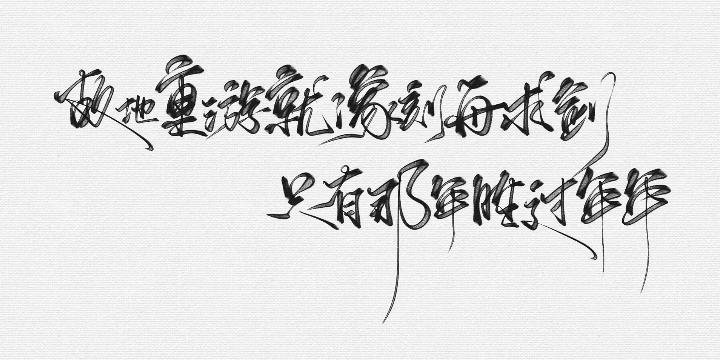 故地重游就像刻舟求剑
只有那年胜过年年